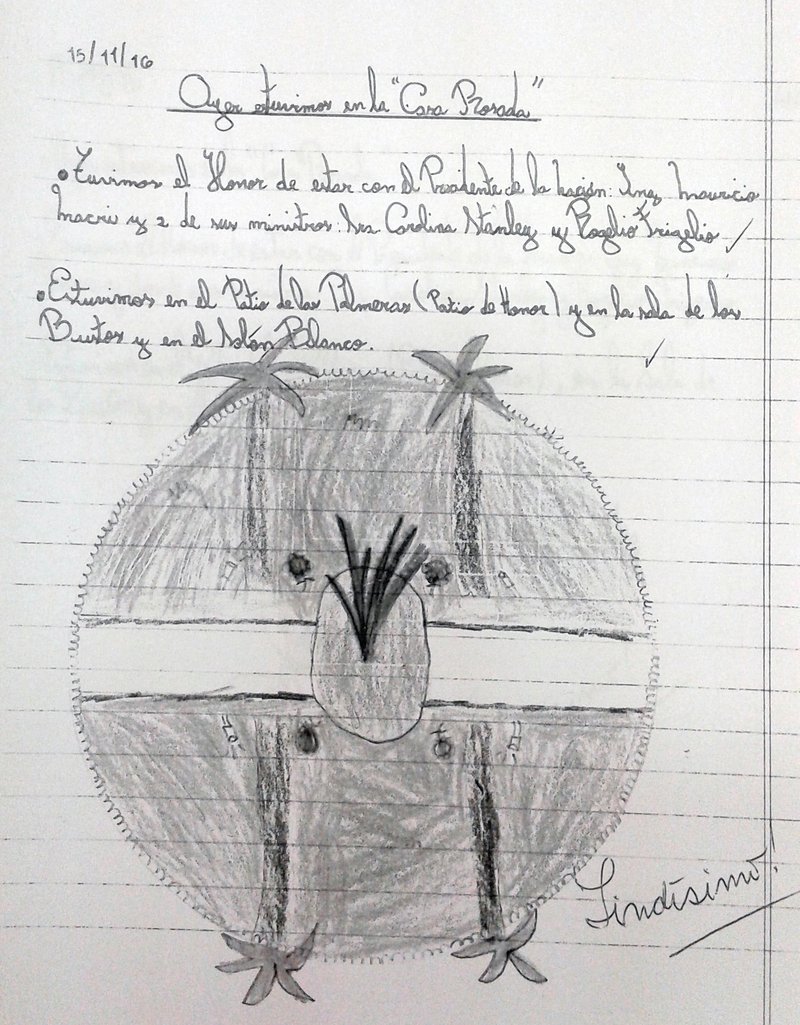 15/11/16
Ayer estuvimos en la "Casa Rosada"
• Tuvimos el Honor de estar con el Presidente de la Nación: Ing. Mauricio
Macri y 2 de sus ministros: Sra Carolina Stanley y Rogelio Frigelio
• Estuvimos en el Patio de las Palmeras (Patio de Honor) y en la sala de los
Bustos y en el Salón Blanco.
Lindísimo!